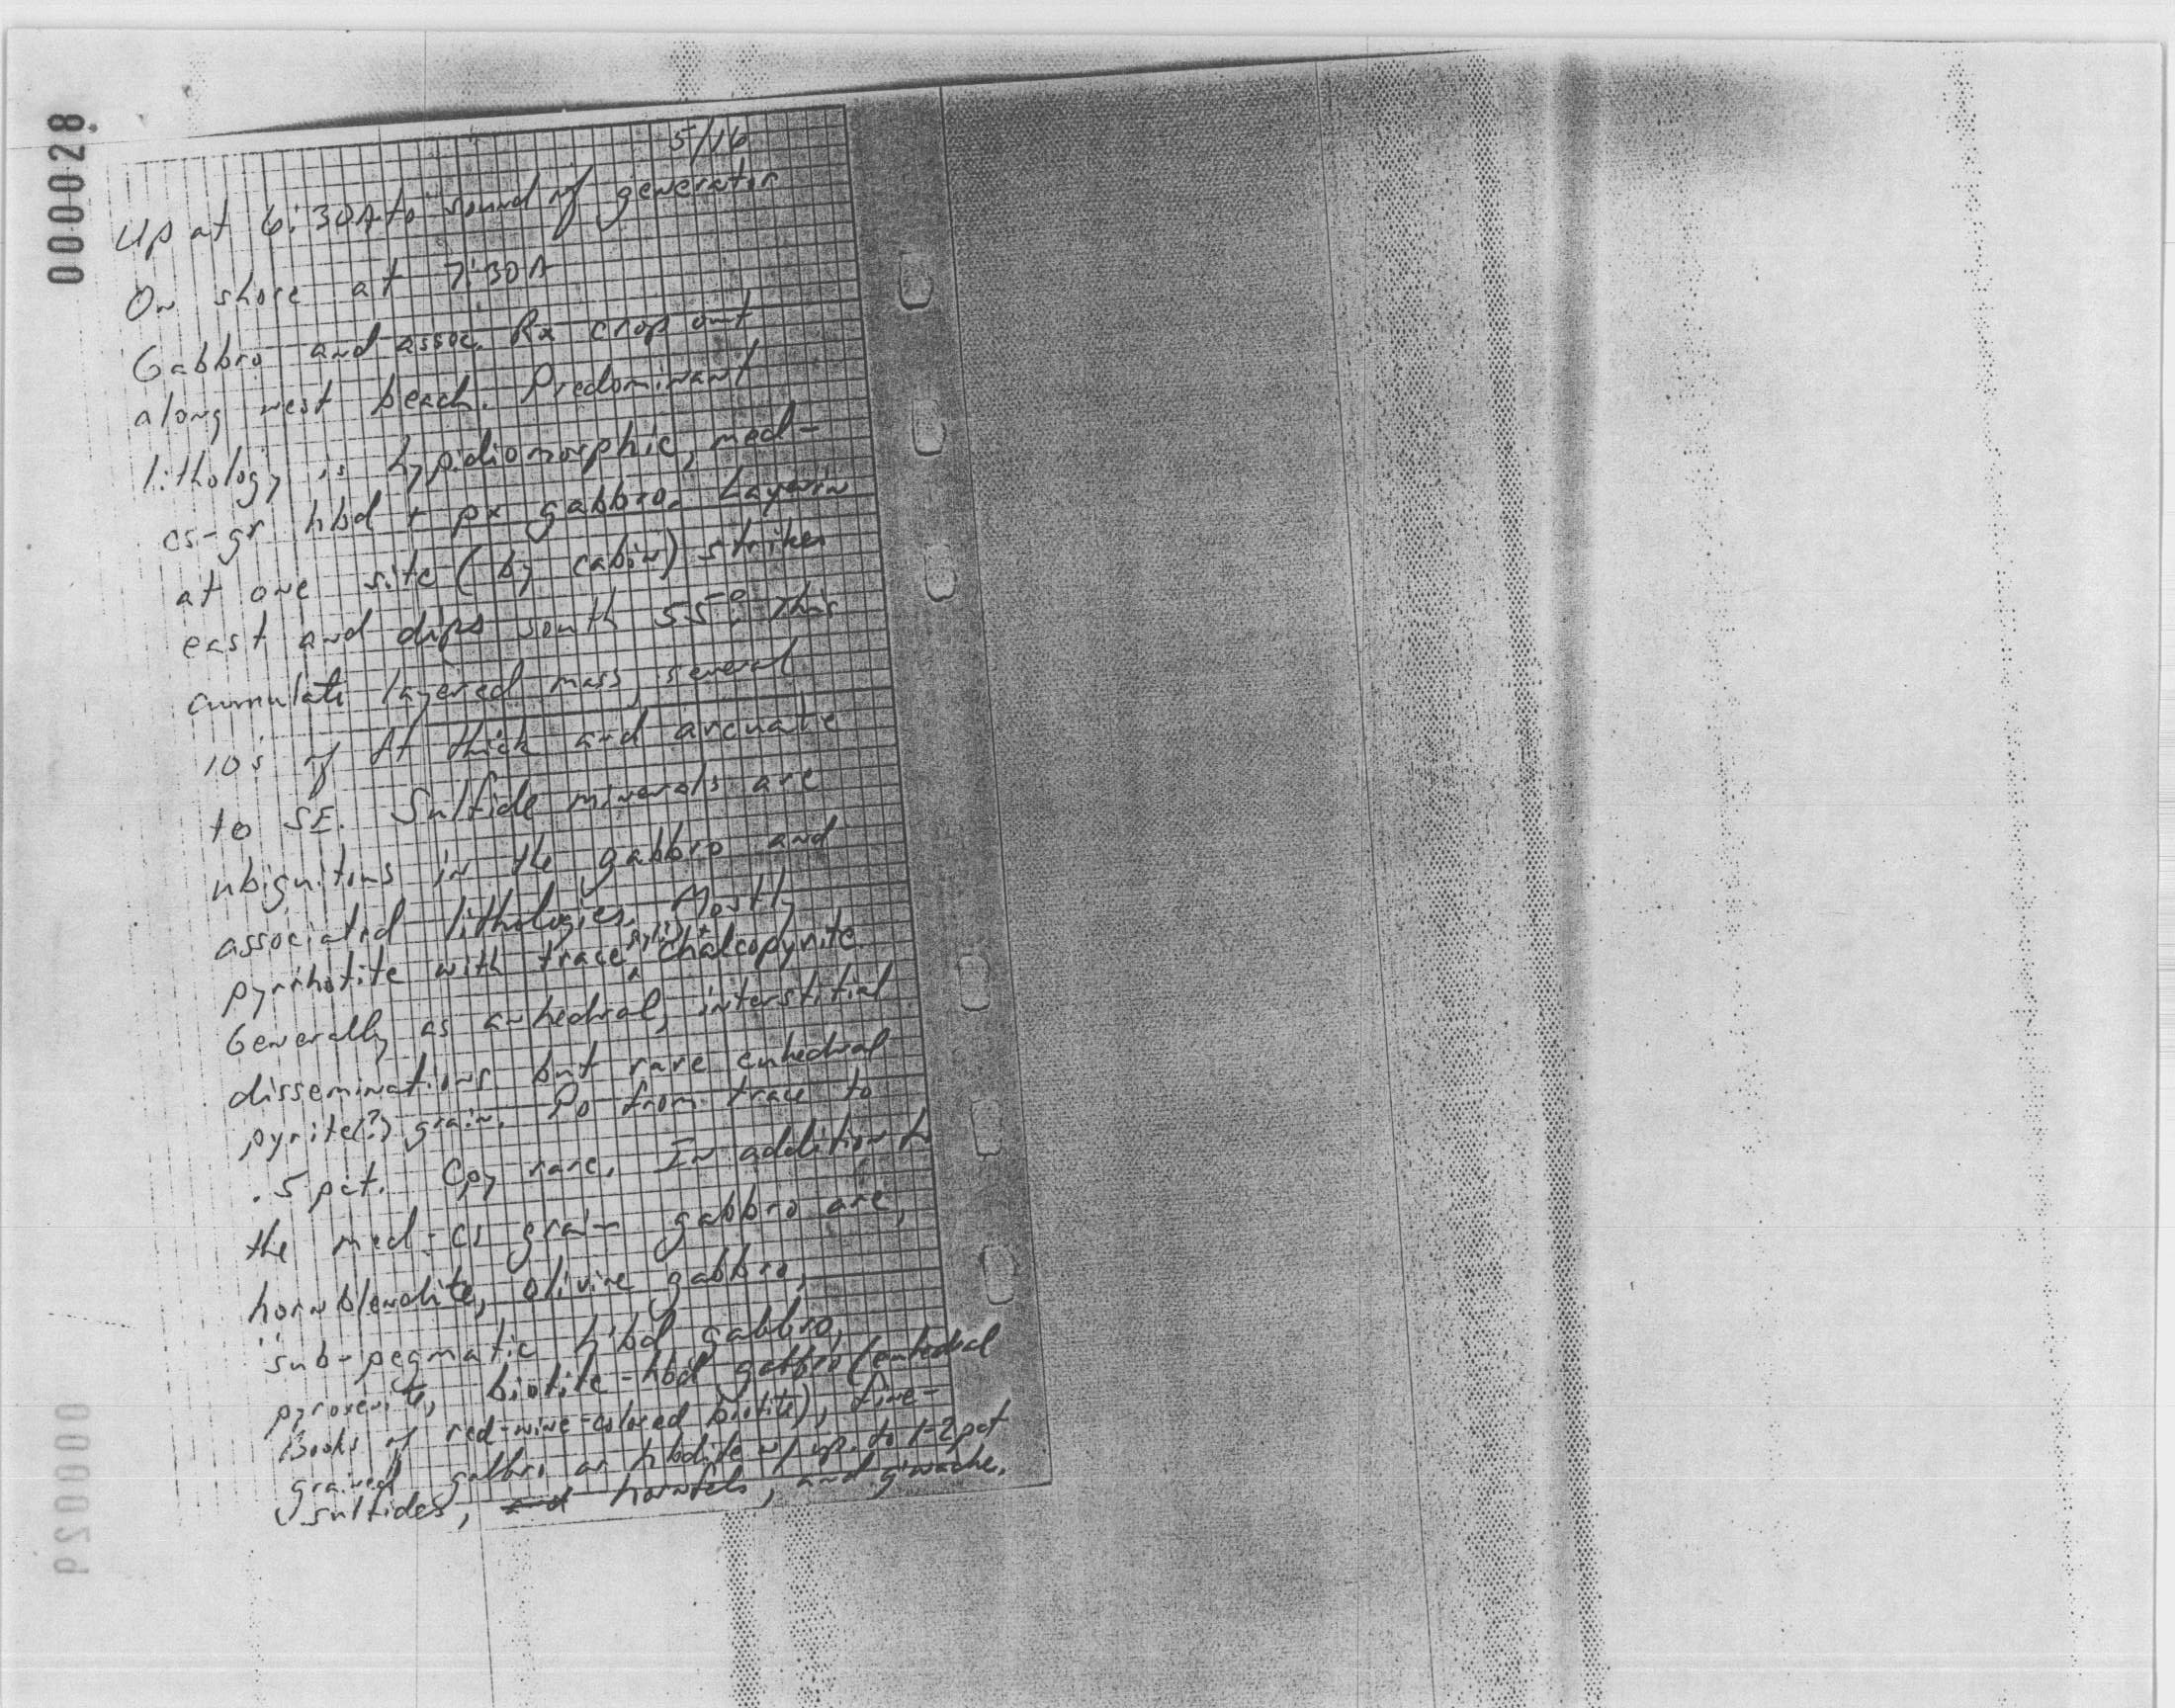 000028
5/16
Up at 6:30A to sound of generator
On shore at 7:30A
Gabbro and assoc. Rx crop out
along west beach. Predominant
lithology is hypidiomorphic, med-
cs-gr hbd + px gabbro. Layerin
at one site (by cabin) strikes
east and dips south 55°. This
cumulate layered mass, several
10s' of ft thick and arcuate
to SE. Sulfide minerals are
ubiquitous in the gabbro and
associated lithologies. Mostly
pyrrhotite with trace chalcopyrite.
Generally as anhedral, interstitial
disseminations but rare euhedral
pyrite(?) grain. Po from trace to
.5 pct. Cpy rare. In addition to
the med-cs grain gabbro are,
hornblendite, olivine gabbro,
sub-pegmatic hbd gabbro,
pyroxenite, biotite-hbd gabbro (euhedral
books of red-wine-colored biotite), fine-
grained gabbro or hbdite w/ up to 1-2 pct
sulfides, and hornfels, and g'wacke.
000029